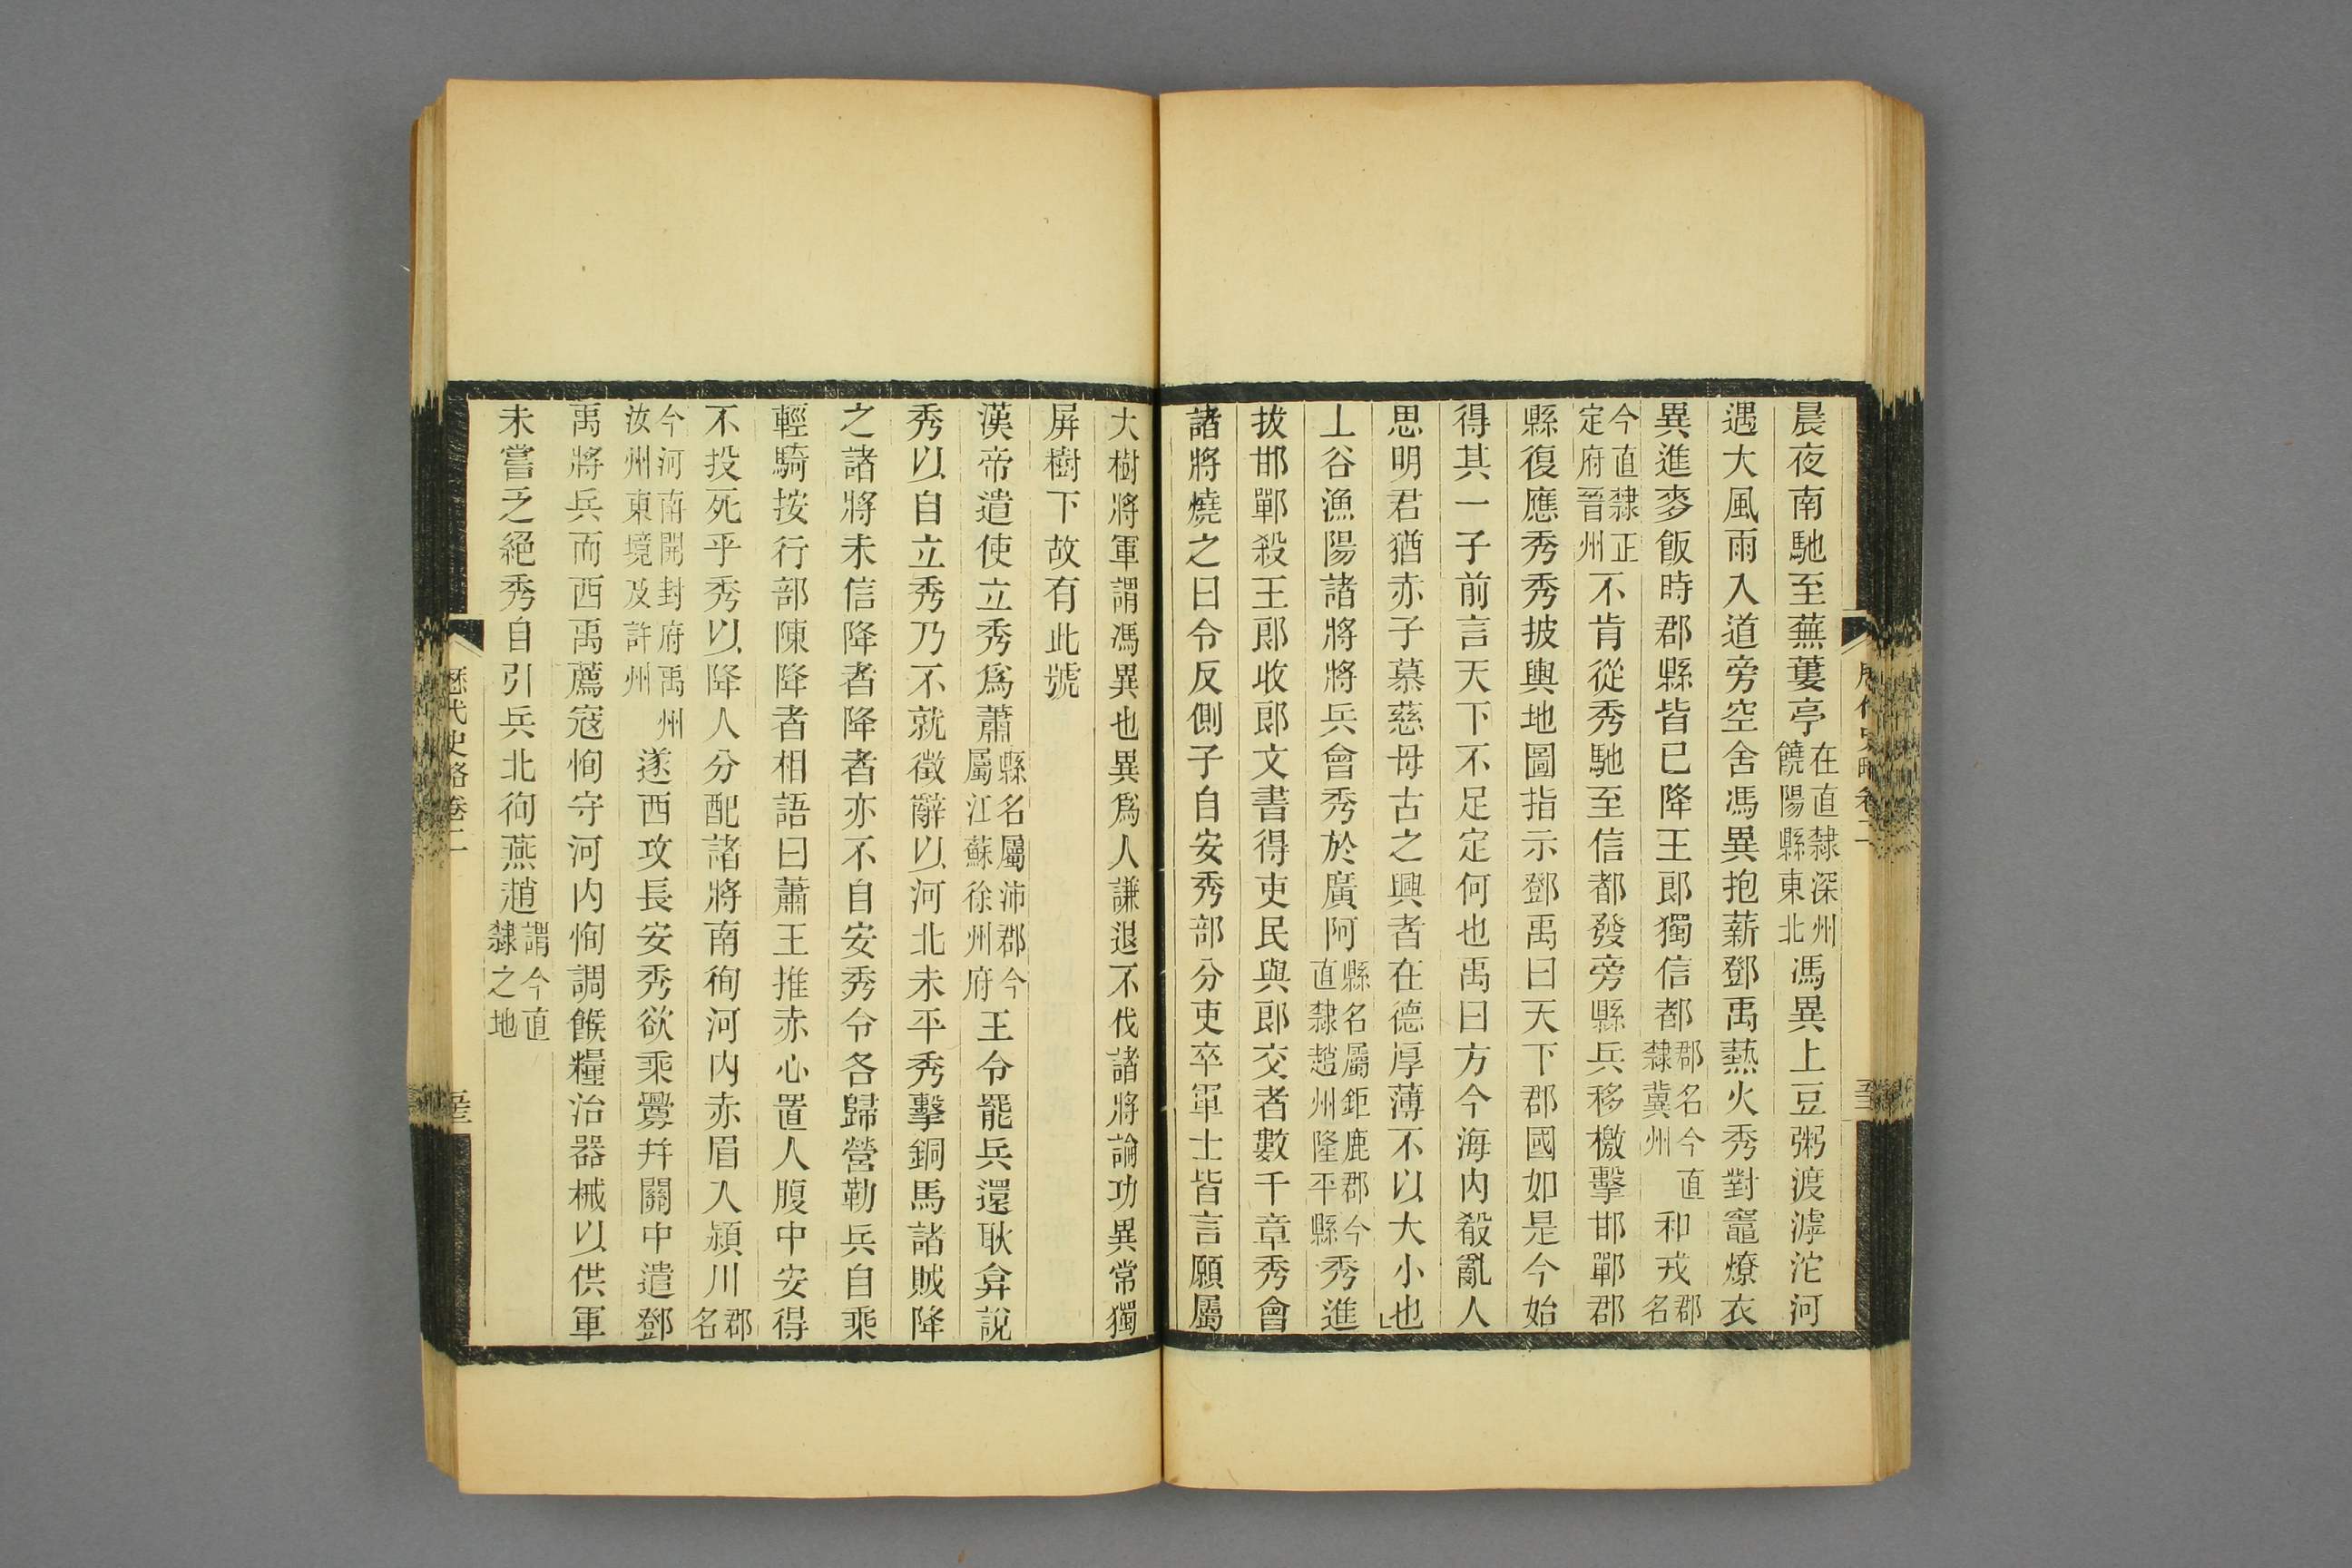 晨夜南馳至蕪蔞亭在直隸深州饒陽縣東北馮異上豆粥渡滹沱河
遇大風雨入道旁空舍馮異抱薪鄧禹爇火秀對竈燎衣
異進麥飯時郡縣皆已降王郎獨信都郡名今直隸冀州和戎郡名
今直隸正定府晉州不肯從秀馳至信都發旁縣兵移檄擊邯鄲郡
縣復應秀秀披輿地圖指示鄧禹曰天下郡國如是今始
得其一子前言天下不足定何也禹曰方今海内殽亂人
思明君猶赤子慕慈母古之興者在德厚薄不以大小也
上谷漁陽諸將將兵會秀於廣阿縣名屬鉅鹿郡今直隸趙州隆平縣秀進
拔邯鄲殺王郎收郎文書得吏民與郎交者數千章秀會
諸將燒之曰令反側子自安秀部分吏卒軍士皆言願屬
大樹將軍謂馮異也異爲人謙退不伐諸將論功異常獨
屏樹下故有此號
漢帝遣使立秀爲蕭縣名屬沛郡今屬江蘇徐州府王令罷兵還耿弇說
秀以自立秀乃不就徵辭以河北未平秀擊銅馬諸賊降
之諸將未信降者降者亦不自安秀令各歸營勒兵自乘
輕騎按行部陳降者相語曰蕭王推赤心置人腹中安得
不投死乎秀以降人分配諸將南徇河内赤眉入潁川郡名
今河南開封府禹州汝州東境及許州遂西攻長安秀欲乘釁并關中遣鄧
禹將兵而西禹薦寇恂守河内恂調餱糧治器械以供軍
未嘗乏絕秀自引兵北徇燕趙謂今直隸之地
歷代史略卷二